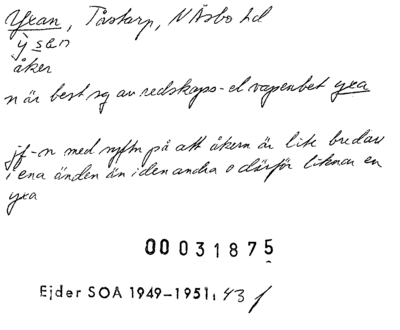 Yxan, Tåstarp, N Åsbo hd
ỳ san
åker
n är best sg av redskaps- el vapenbet yxa
jf-n med syftn på att åkern är lite bredare
i ena änden än i den andra o därför liknar en
yxa
00 031875
Ejder SOA 1949–1951: 43 f